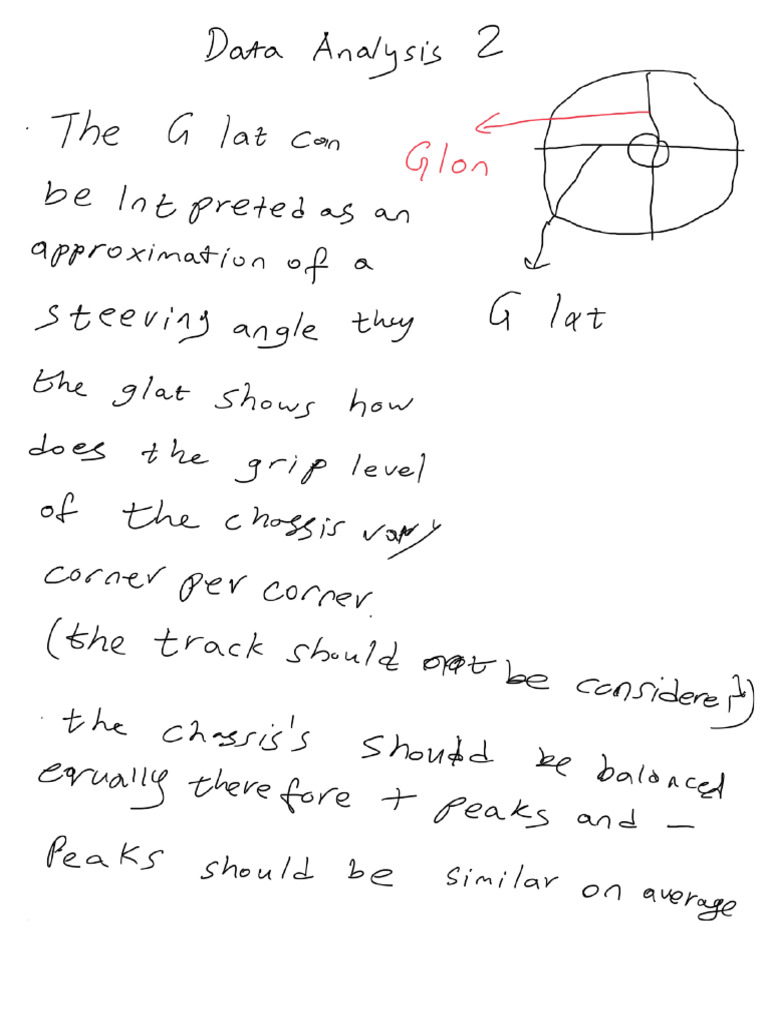 Data Analysis 2
The G lat can
Glon
be Int preted as an
approximation of a
steering angle they
G lat
the glat shows how
does the grip level
of the chassis vary
corner per corner.
(the track should be considered)
the chassis's should be balanced
equally therefore + peaks and -
Peaks should be similar on average